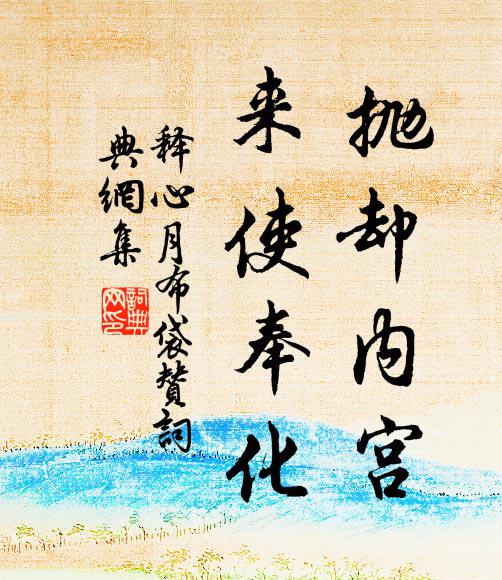 抛却内宫
来使奉化
释心月布袋赞詞
典網集
詞典
网印